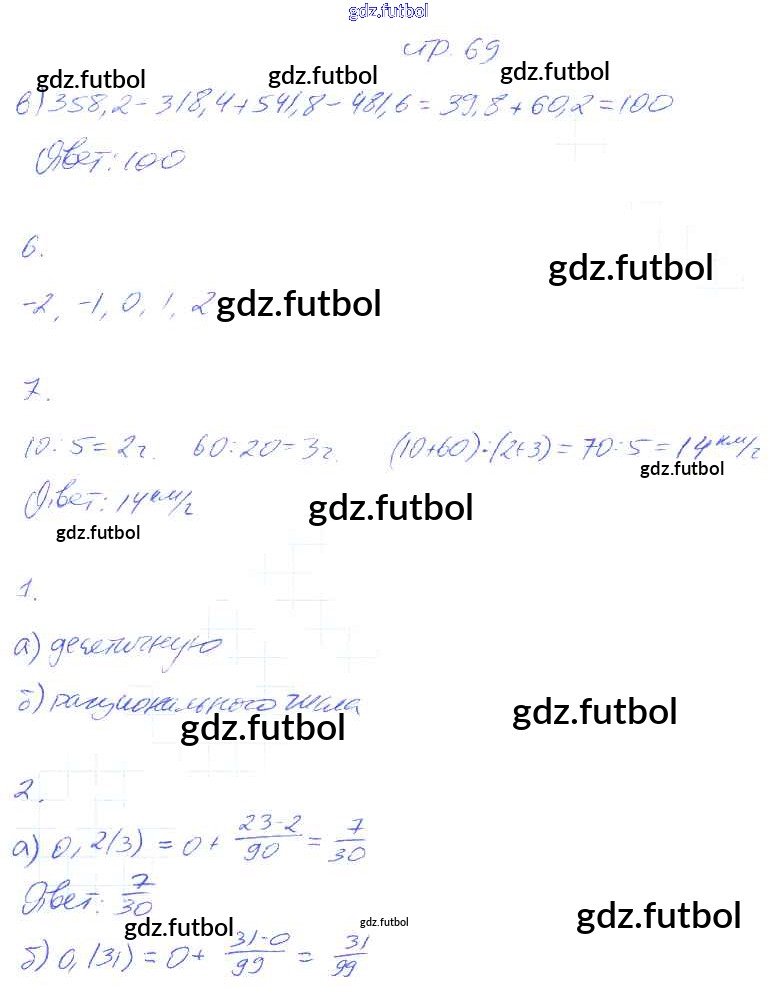 gdz.futbol
стр. 69
gdz.futbol gdz.futbol gdz.futbol
в) 358,2 - 318,4 + 541,8 - 481,6 = 39,8 + 60,2 = 100
Ответ: 100
6.
gdz.futbol
-2, -1, 0, 1, 2 gdz.futbol
7.
10 : 5 = 2 г. 60 : 20 = 3 г. (10+60) : (2+3) = 70 : 5 = 14 км/г
gdz.futbol
Ответ: 14 км/г
gdz.futbol
gdz.futbol
1.
а) десятичную
б) рационального числа
gdz.futbol gdz.futbol
2.
а) 0,2(3) = 0 + 23-2/90 = 7/30
Ответ: 7/30
gdz.futbol gdz.futbol gdz.futbol
б) 0,(31) = 0 + 31-0/99 = 31/99